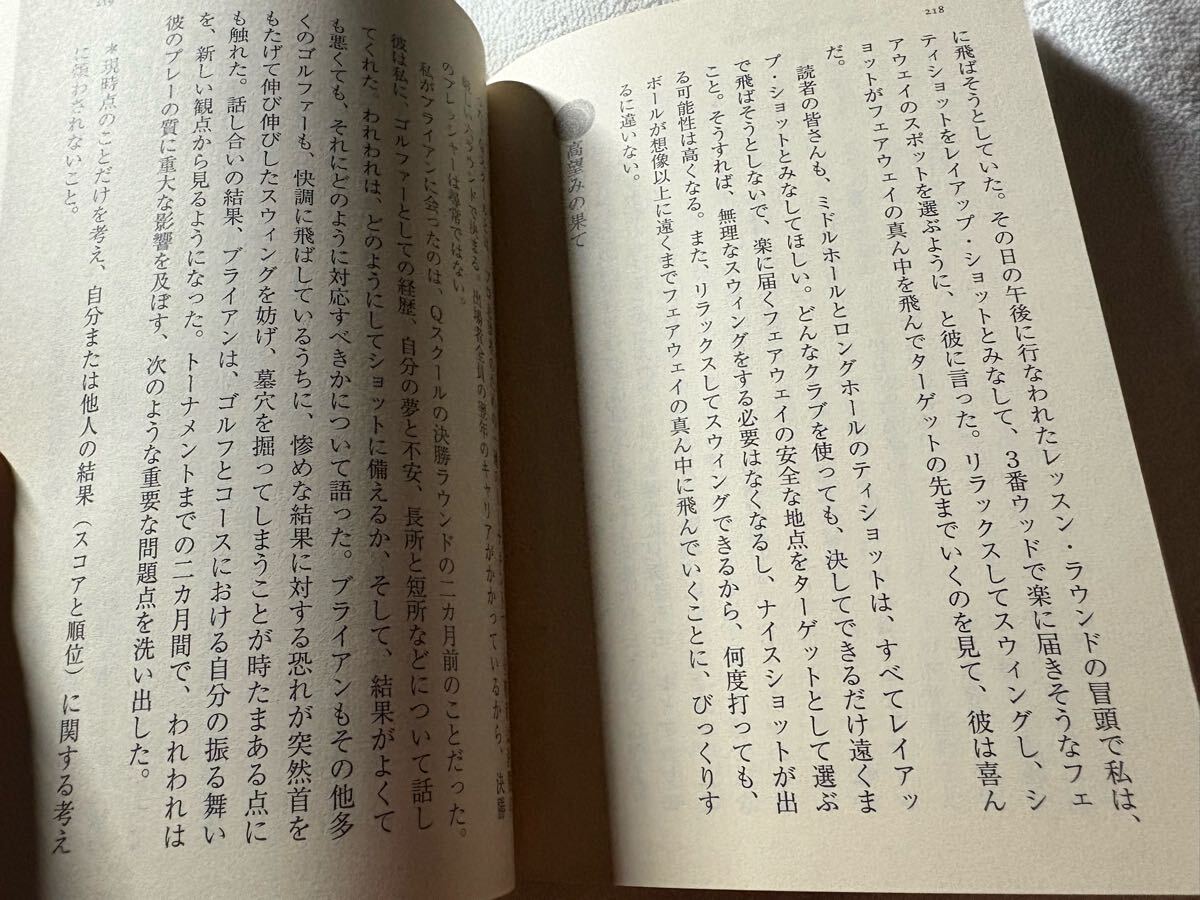 218
に飛ばそうとしていた。その日の午後に行なわれたレッスン・ラウンドの冒頭で私は、
ティショットをレイアップ・ショットとみなして、3番ウッドで楽に届きそうなフェ
アウェイのスポットを選ぶように、と彼に言った。リラックスしてスウィングし、シ
ョットがフェアウェイの真ん中を飛んでターゲットの先までいくのを見て、彼は喜ん
だ。
読者の皆さんも、ミドルホールとロングホールのティショットは、すべてレイアッ
プ・ショットとみなしてほしい。どんなクラブを使っても、決してできるだけ遠くま
で飛ばそうとしないで、楽に届くフェアウェイの安全な地点をターゲットとして選ぶ
こと。そうすれば、無理なスウィングをする必要はなくなるし、ナイスショットが出
る可能性は高くなる。また、リラックスしてスウィングできるから、何度打っても、
ボールが想像以上に遠くまでフェアウェイの真ん中に飛んでいくことに、びっくりす
るに違いない。
高望みの果て
ラウンドで決まる。出場者全員の翌年のキャリアがかかっているから、決勝
のプレッシャーは尋常ではない。
私がブライアンに会ったのは、Qスクールの決勝ラウンドの二カ月前のことだった。
彼は私に、ゴルファーとしての経歴、自分の夢と不安、長所と短所などについて話し
てくれた。われわれは、どのようにしてショットに備えるか、そして、結果がよくて
も悪くても、それにどのように対応すべきかについて語った。ブライアンもその他多
くのゴルファーも、快調に飛ばしているうちに、惨めな結果に対する恐れが突然首を
もたげて伸び伸びしたスウィングを妨げ、墓穴を掘ってしまうことが時たまある点に
も触れた。話し合いの結果、ブライアンは、ゴルフとコースにおける自分の振る舞い
を、新しい観点から見るようになった。トーナメントまでの二カ月間で、われわれは
彼のプレーの質に重大な影響を及ぼす、次のような重要な問題点を洗い出した。
*現時点のことだけを考え、自分または他人の結果（スコアと順位）に関する考え
に煩わされないこと。